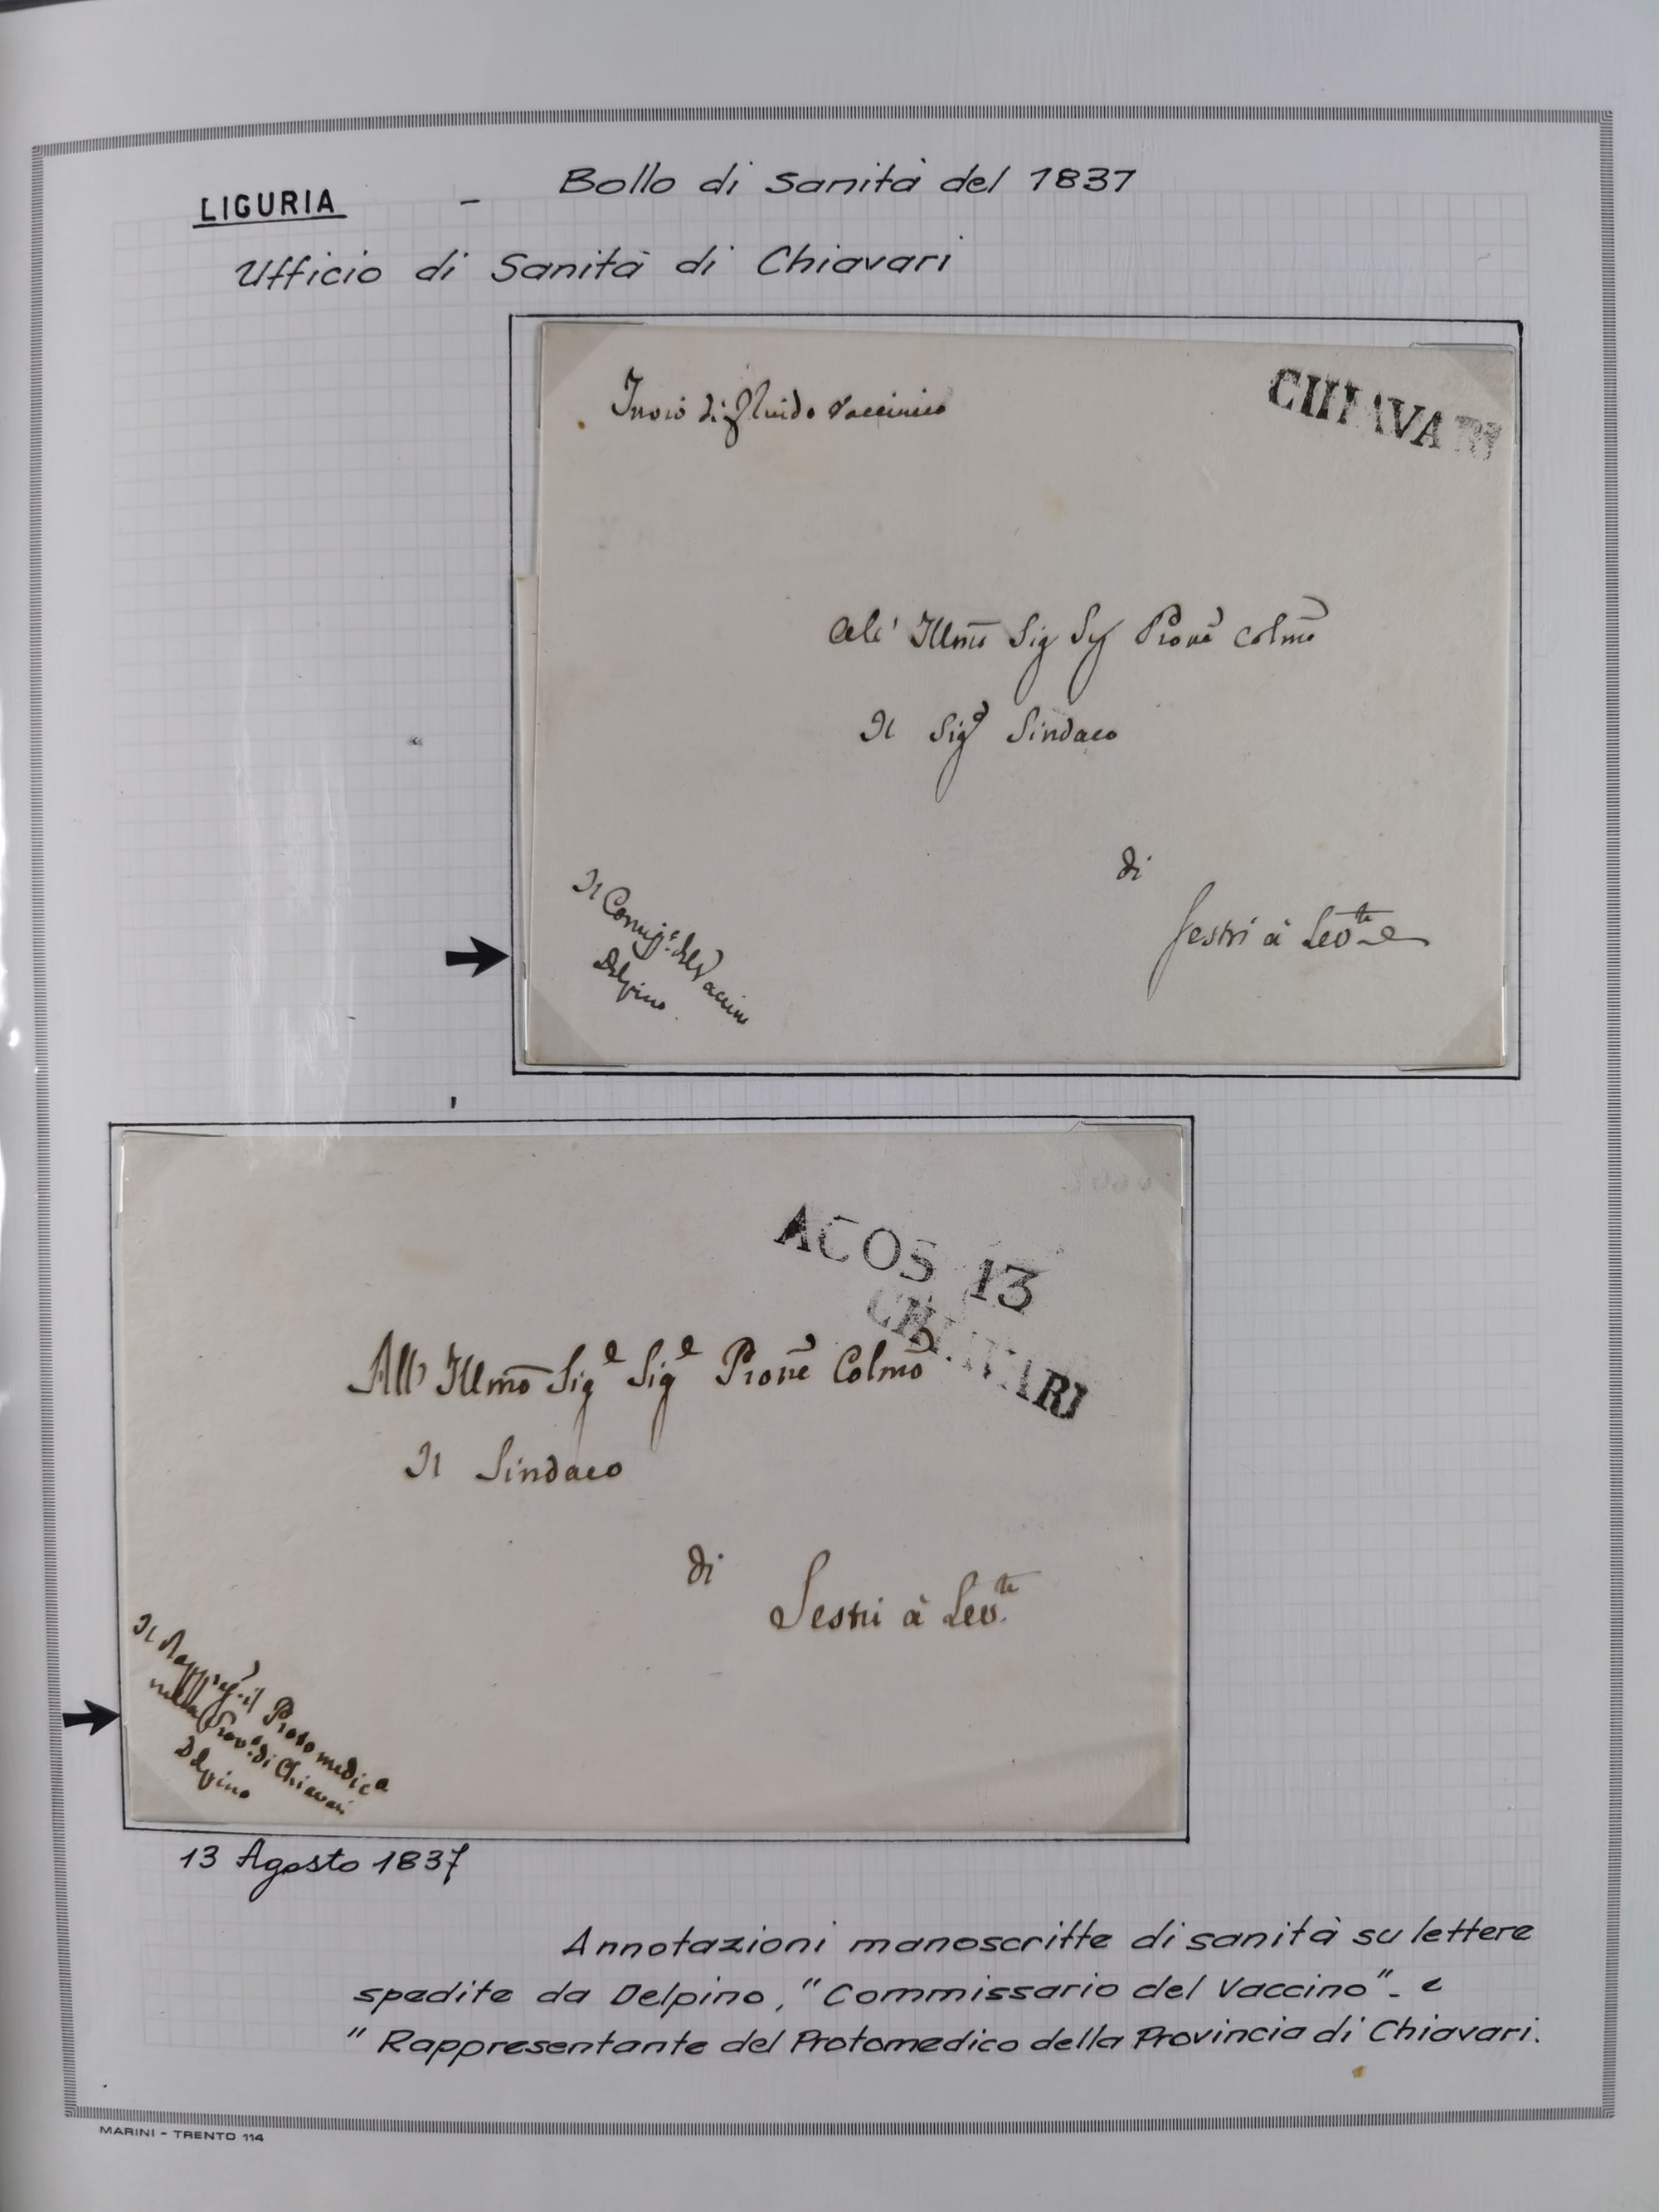 LIGURIA - Bollo di Sanità del 1837
Ufficio di Sanità di Chiavari
Invio di fluido Vaccinico
CHIAVARI
All' Illmo Sig Sig Prone Colmo
Il Sigr Sindaco
di
Sestri à Levte
Il Commisso del Vaccino
Delpino
AGOS 13
CHIAVARI
All' Illmo Sigr Sigr Prone Colmo
Il Sindaco
di
Sestri à Levte
Il Protomedico
nella Prova di Chiavari
Delpino
13 Agosto 1837
Annotazioni manoscritte di sanità su lettere
spedite da Delpino, "Commissario del Vaccino" - e
"Rappresentante del Protomedico della Provincia di Chiavari.
MARINI - TRENTO 114